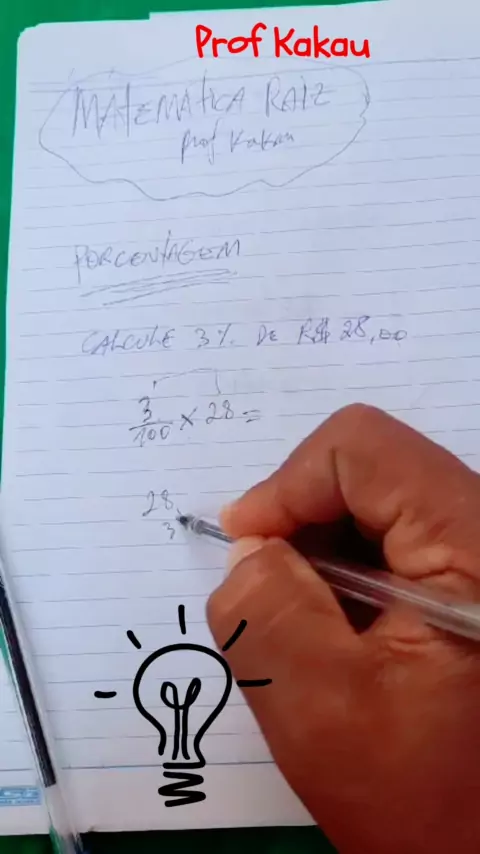 Prof Kakau
MATEMÁTICA RAIZ
Prof Kakau
PORCENTAGEM
CALCULE 3% DE R$ 28,00
3/100 × 28 =
28
3